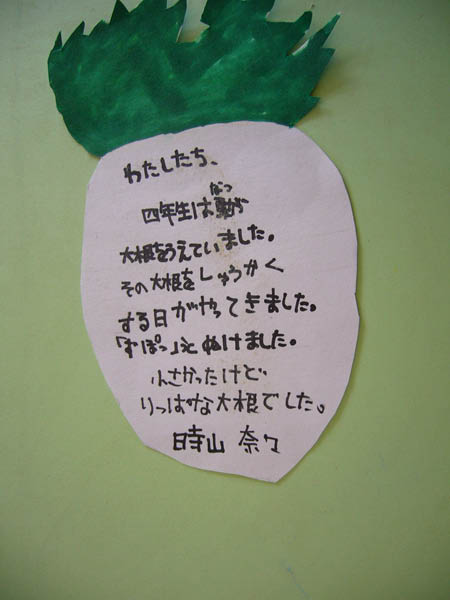 わたしたち、
なつ
四年生は夏が
大根をうえていました。
その大根をしゅうかく
する日がやってきました。
「すぽっ」えぬけました。
小さかったけど
りっぱな大根でした。
時山 奈々